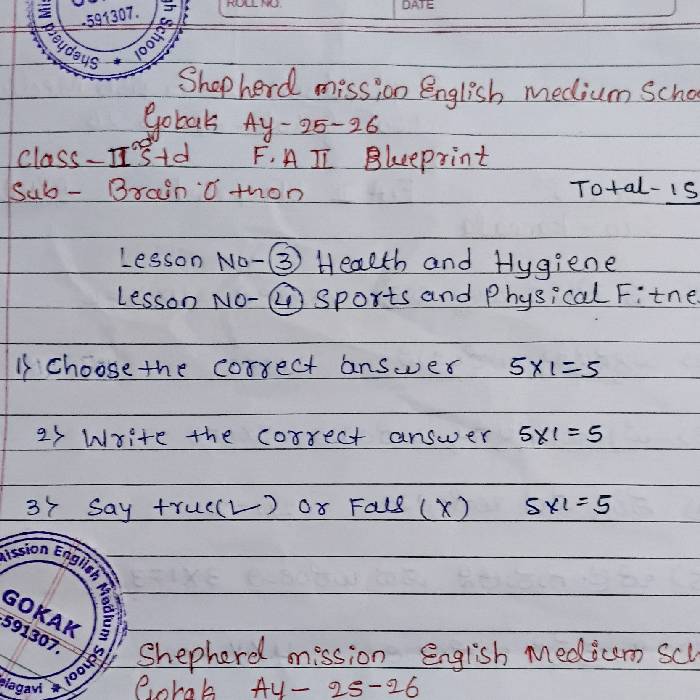 ROLL NO.
DATE
591307.
Shepherd Mis
School
Shepherd mission English medium Scho
Gokak Ay-25-26
Class-II Std F.A II Blueprint
Sub- Brain O thon
Total-15
Lesson No-③ Health and Hygiene
Lesson No-④ Sports and Physical Fitne
1) Choose the correct answer 5x1=5
2) Write the correct answer 5x1=5
3) Say true(✓) or Fals (x) 5x1=5
Mission English Medium School
GOKAK
-591307.
elagavi
Shepherd mission English Medium Sch
Gokak Ay-25-26